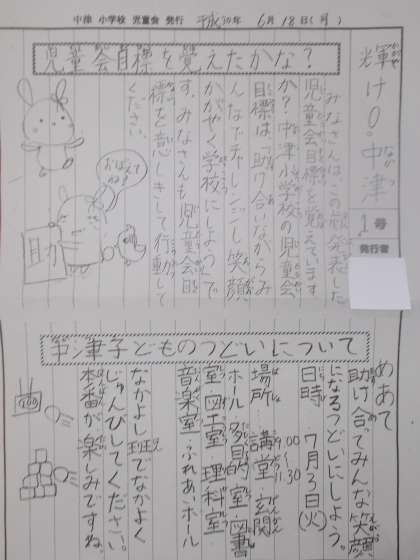 中津 小学校 児童会 発行 平成30年 6月 18日(月)
輝け！中津
1号
発行者
児童会目標を覚えたかな？
みなさんはこの前発表した
児童会目標を覚えています
か？中津小学校の児童会
目標は「助け合いながらみ
んなでチャレンジし笑顔
かがやく学校にしよう」で
す。みなさんも児童会目
標を意しきして行動して
ください。
おぼえてね！
助
中津子どものつどいについて
めあて
助け合ってみんな笑顔
になるつどいにしよう。
日時 7月3日(火)
9:00〜11:30
場所 講堂・玄関
ホール・多目的室・図書
室・図工室・理科室
音楽室・ふれあいホール
なかよし班でなかよく
じゅんびしてください。
本番が楽しみですね。